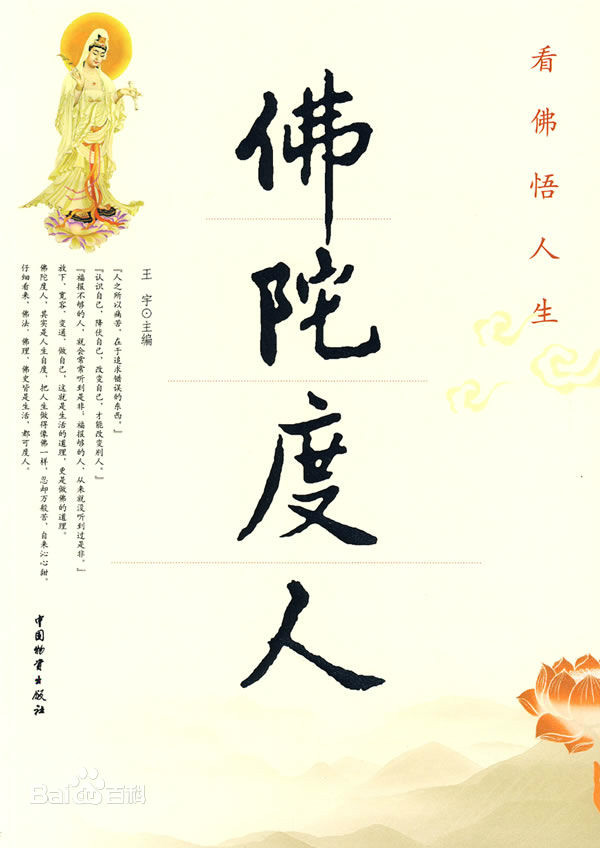 看佛悟人生
佛陀度人
王宇⊙主编
『人之所以痛苦，在于追求错误的东西。』
『认识自己，降伏自己，改变自己，才能改变别人。』
『福报不够的人，就会常常听到是非；福报够的人，从来就没听到过是非。』
放下、宽容、变通、做自己，这就是生活的道理，更是做佛的道理。
佛陀度人，其实是人生自度，把人生做得像佛一样，忍却万般苦，自来沁心甜。
仔细看来，佛法、佛理、佛史皆是生活，都可度人。
中国物资出版社
Bai百科